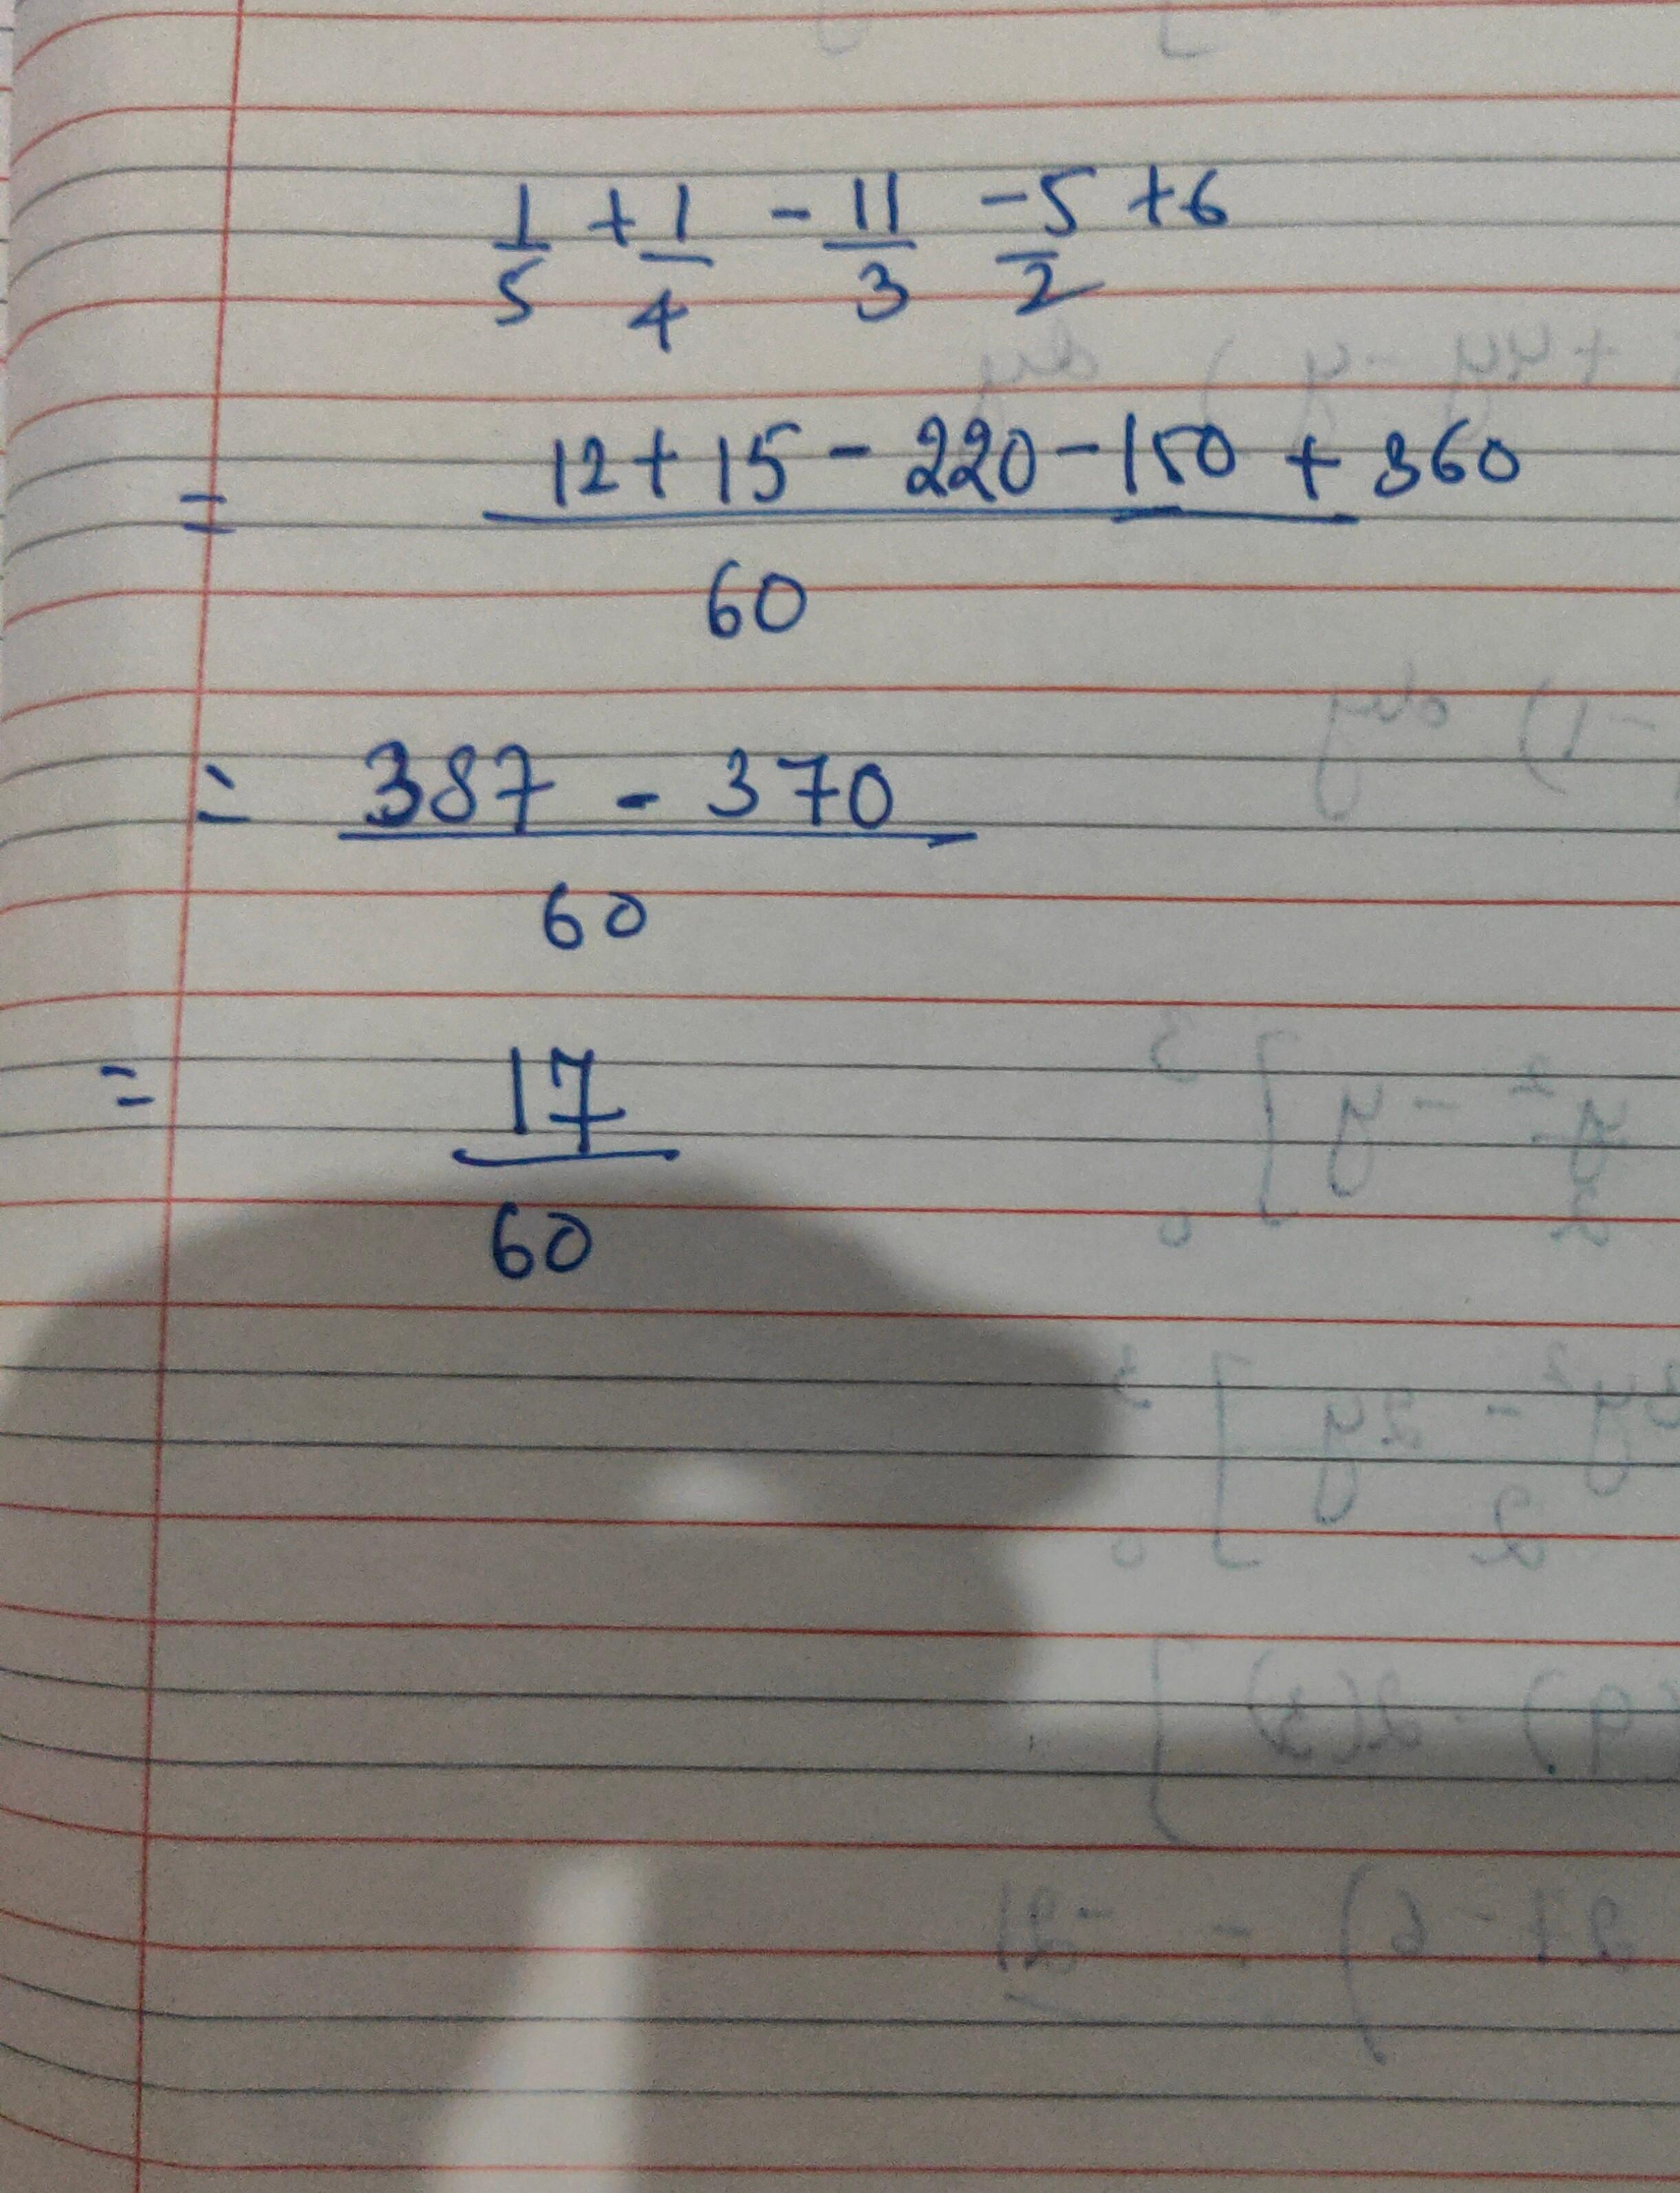 1/5 + 1/4 - 11/3 - 5/2 + 6
= (12 + 15 - 220 - 150 + 360)/60
= (387 - 370)/60
= 17/60